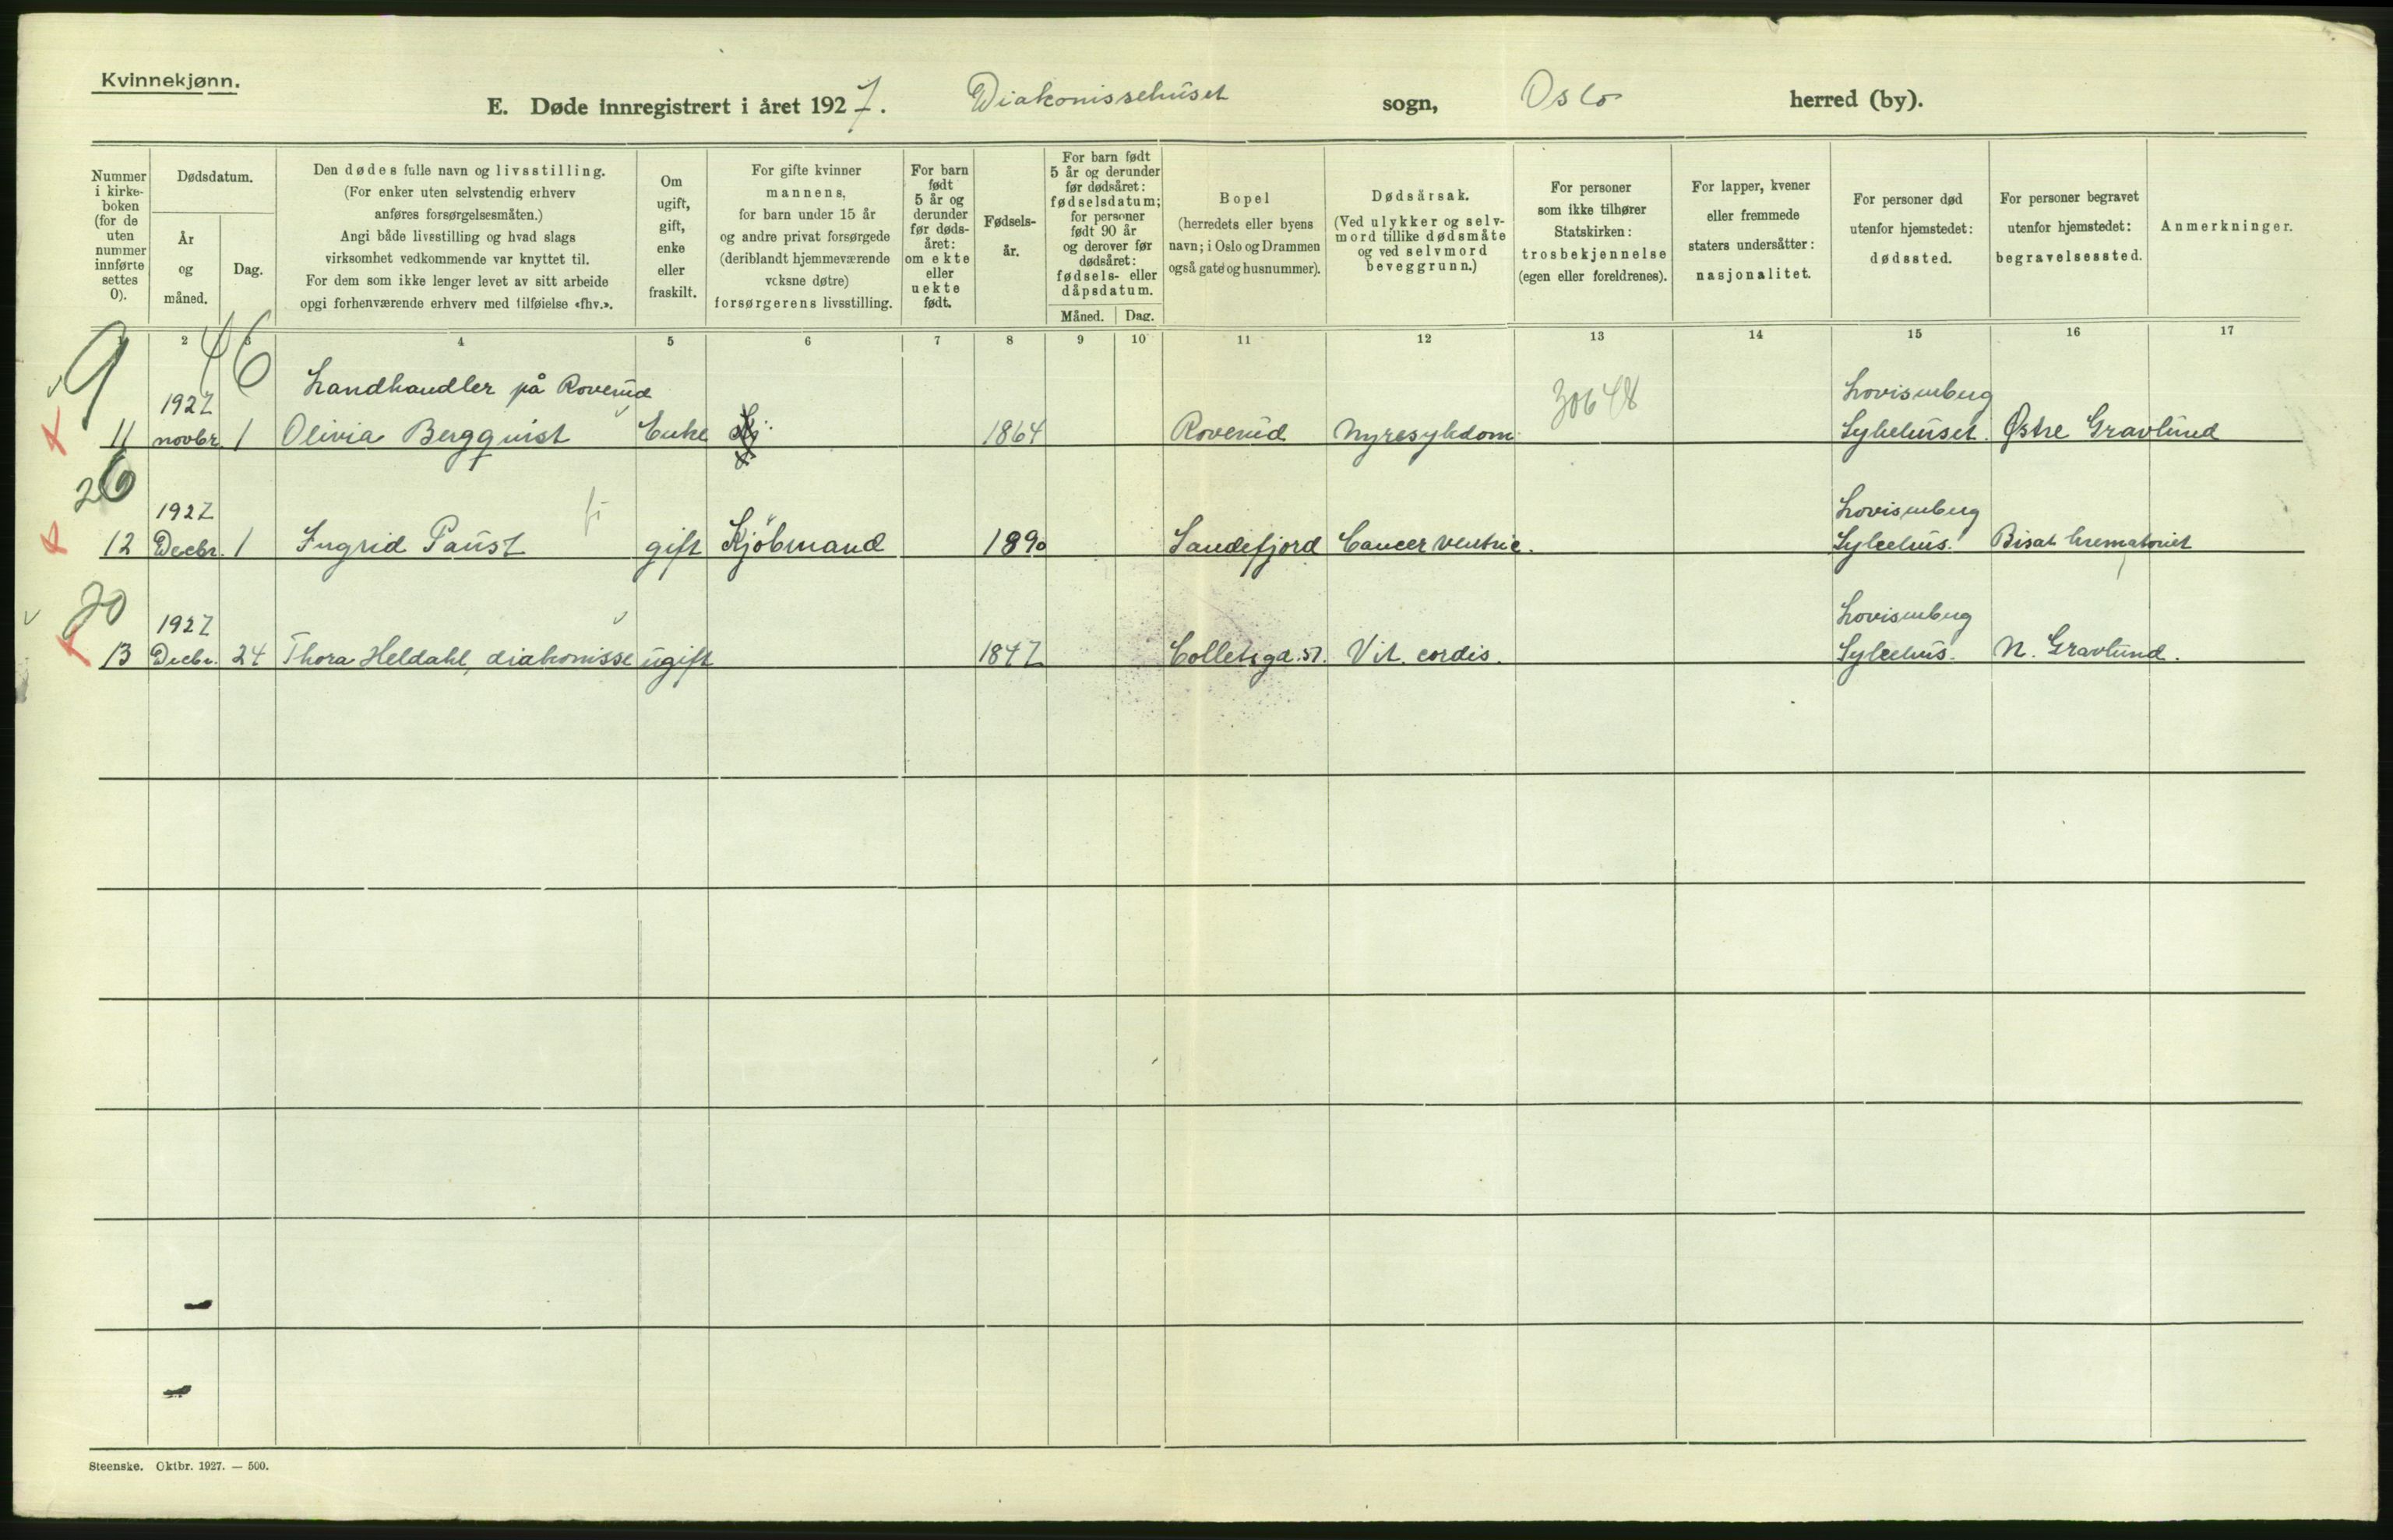 Kvinnekjønn.
E. Døde innregistrert i året 1927. Diakonissehuset sogn, Oslo herred (by).
Nummer
i kirke-
boken
(for de
uten
nummer
innførte
settes
0).
Dødsdatum.
År
og
måned.
Dag.
Den dødes fulle navn og livsstilling.
(For enker uten selvstendig erhverv
anføres forsørgelsesmåten.)
Angi både livsstilling og hvad slags
virksomhet vedkommende var knyttet til.
For dem som ikke lenger levet av sitt arbeide
opgi forhenværende erhverv med tilføielse «fhv.».
Om
ugift,
gift,
enke
eller
fraskilt.
For gifte kvinner
mannens,
for barn under 15 år
og andre privat forsørgede
(deriblandt hjemmeværende
voksne døtre)
forsørgerens livsstilling.
For barn
født
5 år og
derunder
før døds-
året:
om ekte
eller
uekte
født.
Fødsels-
år.
For barn født
5 år og derunder
før dødsåret:
fødselsdatum;
for personer
født 90 år
og derover før
dødsåret:
fødsels- eller
dåpsdatum.
Måned. Dag.
Bopel
(herredets eller byens
navn; i Oslo og Drammen
også gate og husnummer).
Dødsårsak.
(Ved ulykker og selv-
mord tillike dødsmåte
og ved selvmord
beveggrunn.)
For personer
som ikke tilhører
Statskirken:
trosbekjennelse
(egen eller foreldrenes).
For lapper, kvener
eller fremmede
staters undersåtter:
nasjonalitet.
For personer død
utenfor hjemstedet:
dødssted.
For personer begravet
utenfor hjemstedet:
begravelsessted.
Anmerkninger.
1 2 3 4 5 6 7 8 9 10 11 12 13 14 15 16 17
9 46
Landhandler på Roverud
1927 30648 Lovisenberg
11 novbr. 1 Olivia Bergquist Enke 1864 Roverud Nyresykdom Sykehuset. Østre Gravlund
26
1927 Lovisenberg
12 Decbr. 1 Ingrid Paust gift Kjöbmand 1890 Sandefjord Cancer ventric. Sykehus. Bisat krematoriet
20
1927 Lovisenberg
13 Decbr. 24 Thora Heldahl, diakonisse ugift 1847 Colletsgd. 57. Vit. cordis. Sykehus. N. Gravlund.
Steenske. Oktbr. 1927. — 500.